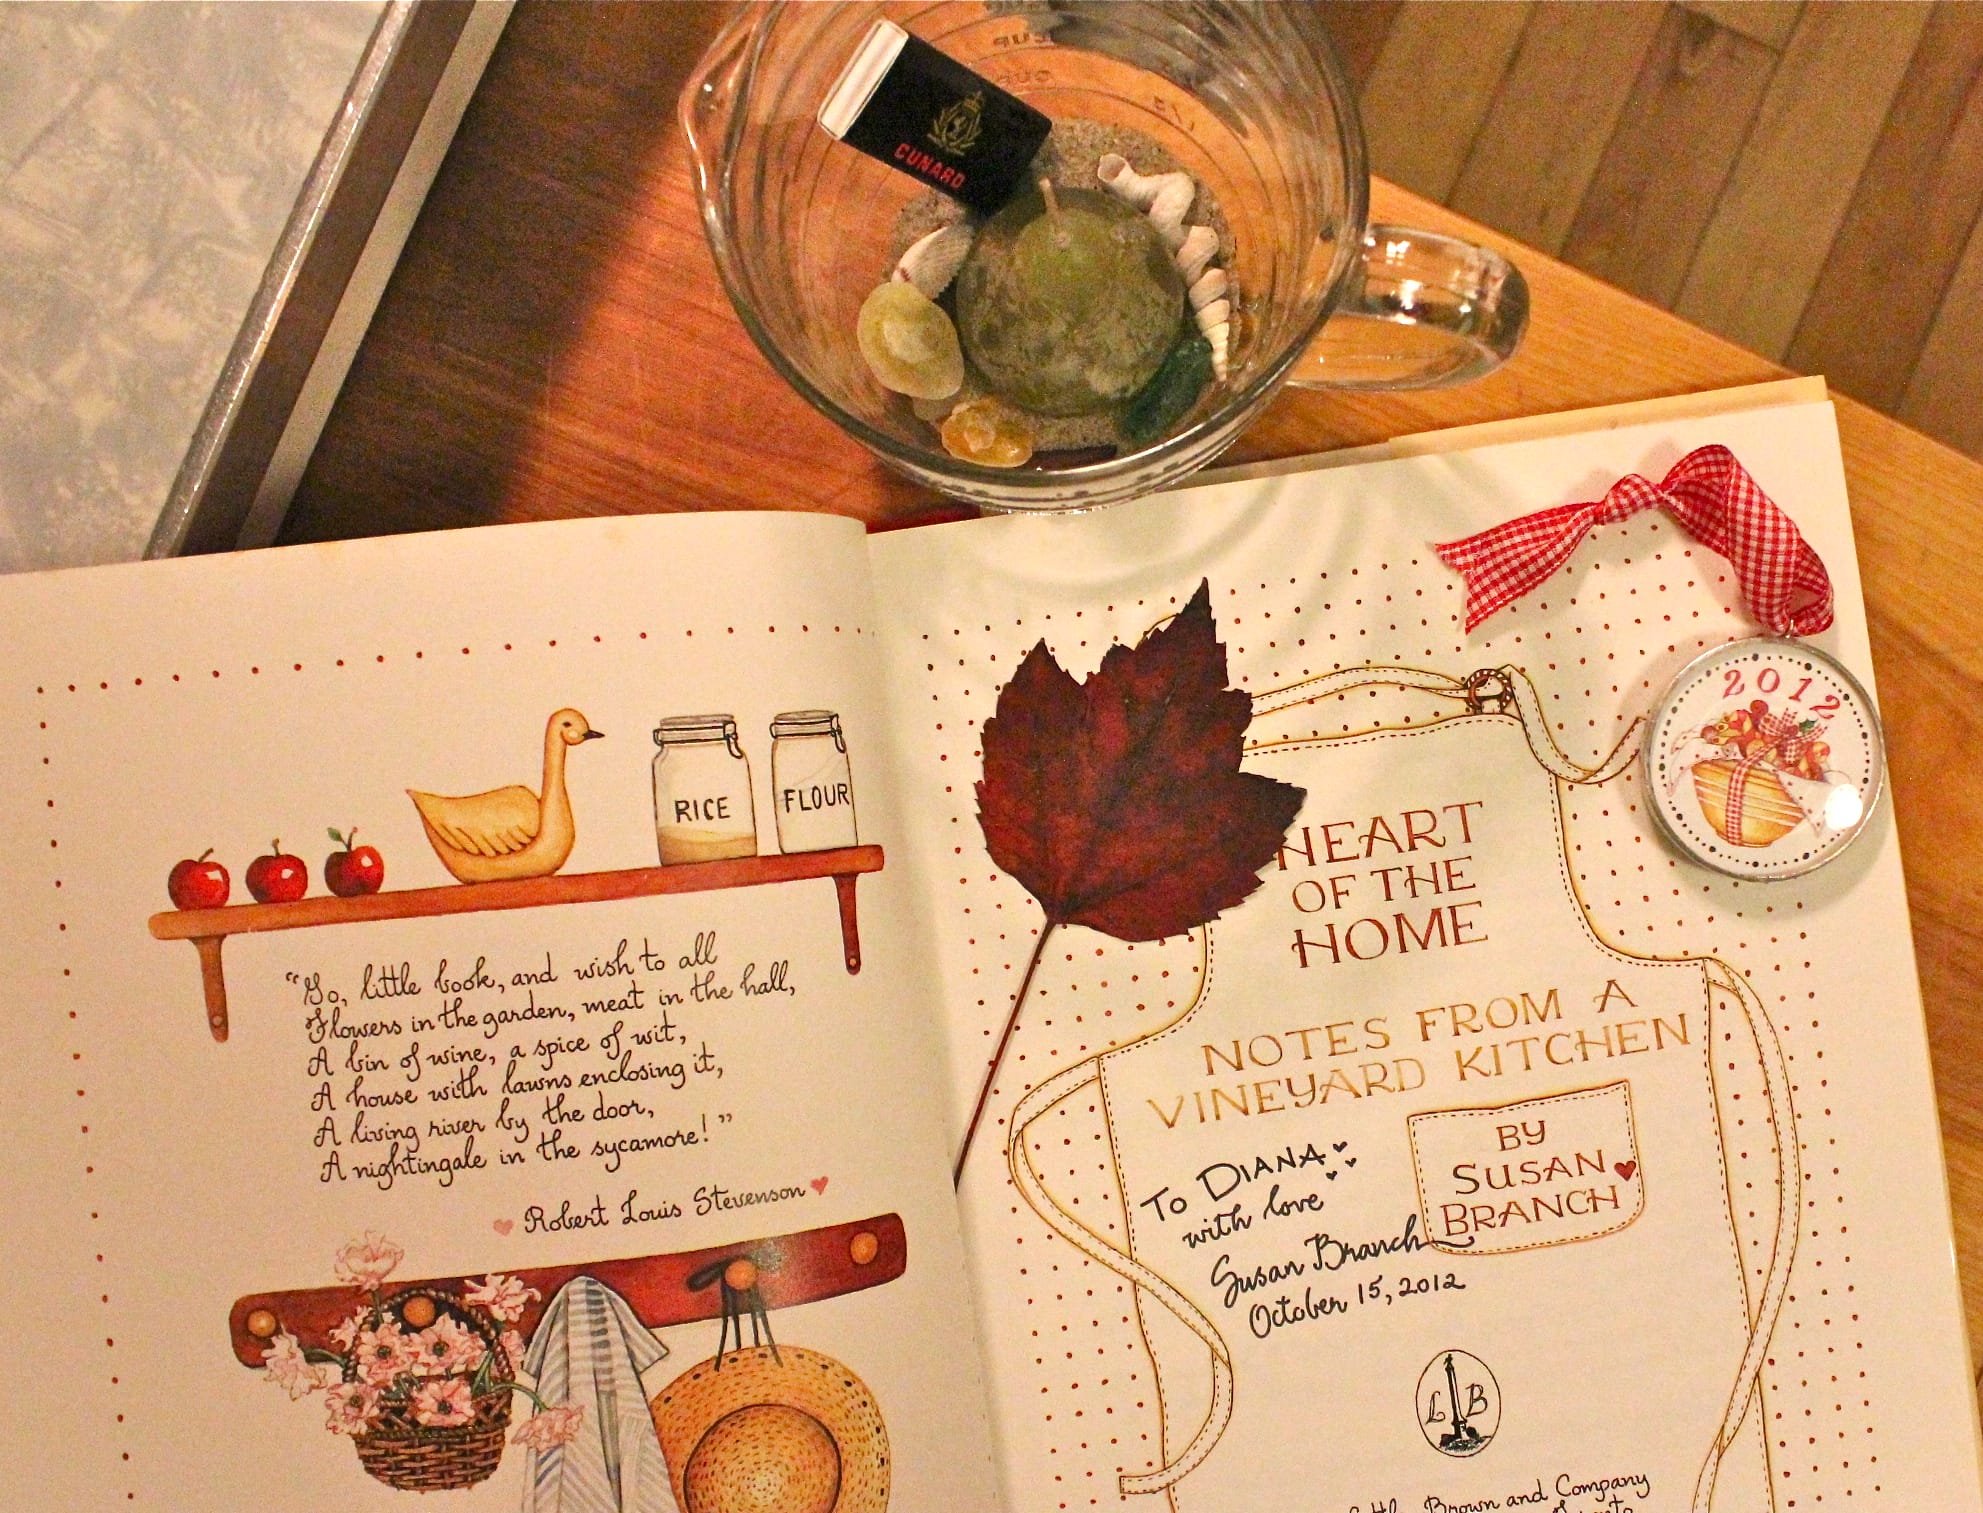 CUNARD
2012
RICE
FLOUR
"Go, little book, and wish to all
Flowers in the garden, meat in the hall,
A bin of wine, a spice of wit,
A house with lawns enclosing it,
A living river by the door,
A nightingale in the sycamore!"
Robert Louis Stevenson
HEART
OF THE
HOME
NOTES FROM A
VINEYARD KITCHEN
BY
SUSAN
BRANCH
To DIANA
with love
Susan Branch
October 15, 2012
L B
Brown and Company